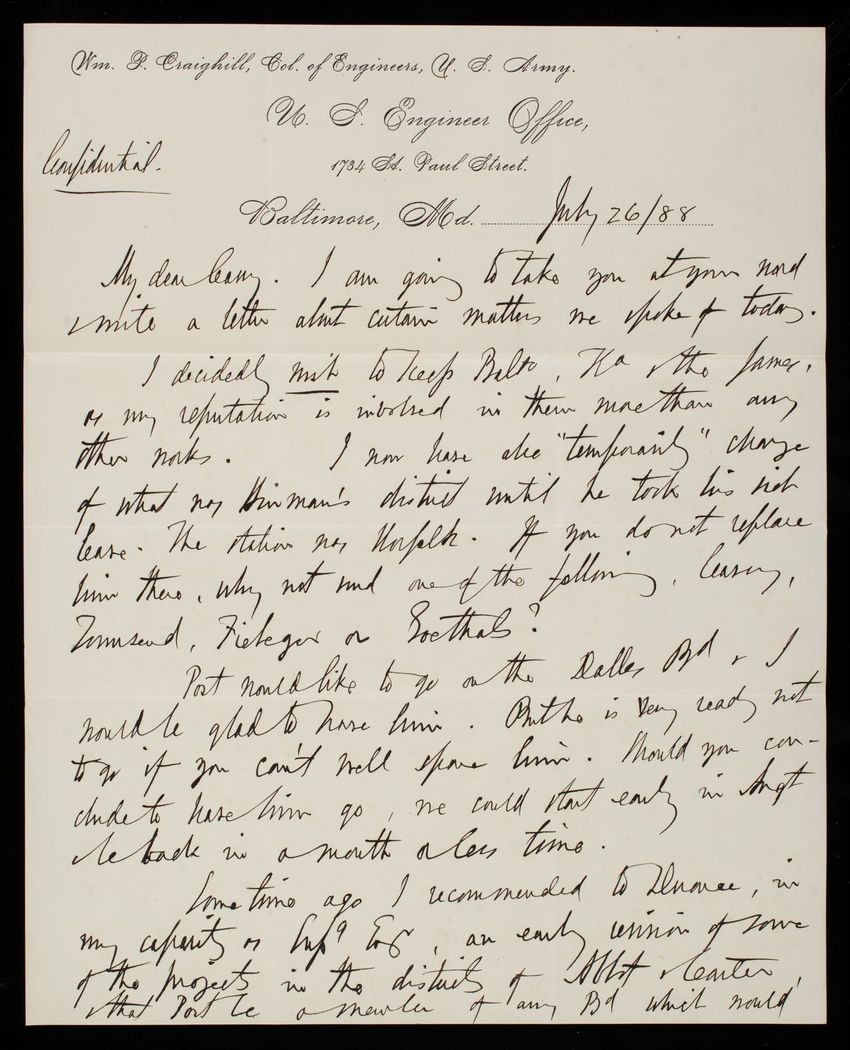 Wm. P. Craighill, Col. of Engineers, U. S. Army.
U. S. Engineer Office,
1734 St. Paul Street.
Confidential.
Baltimore, Md. July 26/88
My dear Casey. I am going to take you at your word
& write a letter about certain matters we spoke of today.
I decidedly wish to keep Balto, Ka & the James,
as my reputation is involved in them more than any
other works. I now have also "temporarily" charge
of what was Hinman's district until he took his sick
leave. The station was Norfolk. If you do not replace
him there, why not send one of the following,
Townsend, Fiebeger or Goethals?
Post would like to go on the Dalles Bd & I
would be glad to have him. But he is very ready not
to go if you can't well spare him. Should you con-
clude to have him go, we could start early in Augt
& be back in a month or less time.
Some time ago I recommended to Duane, in
my capacity as Supg Engr, an early revision of some
of the projects in the districts of Abbot &
& that Post be a member of any Bd which would